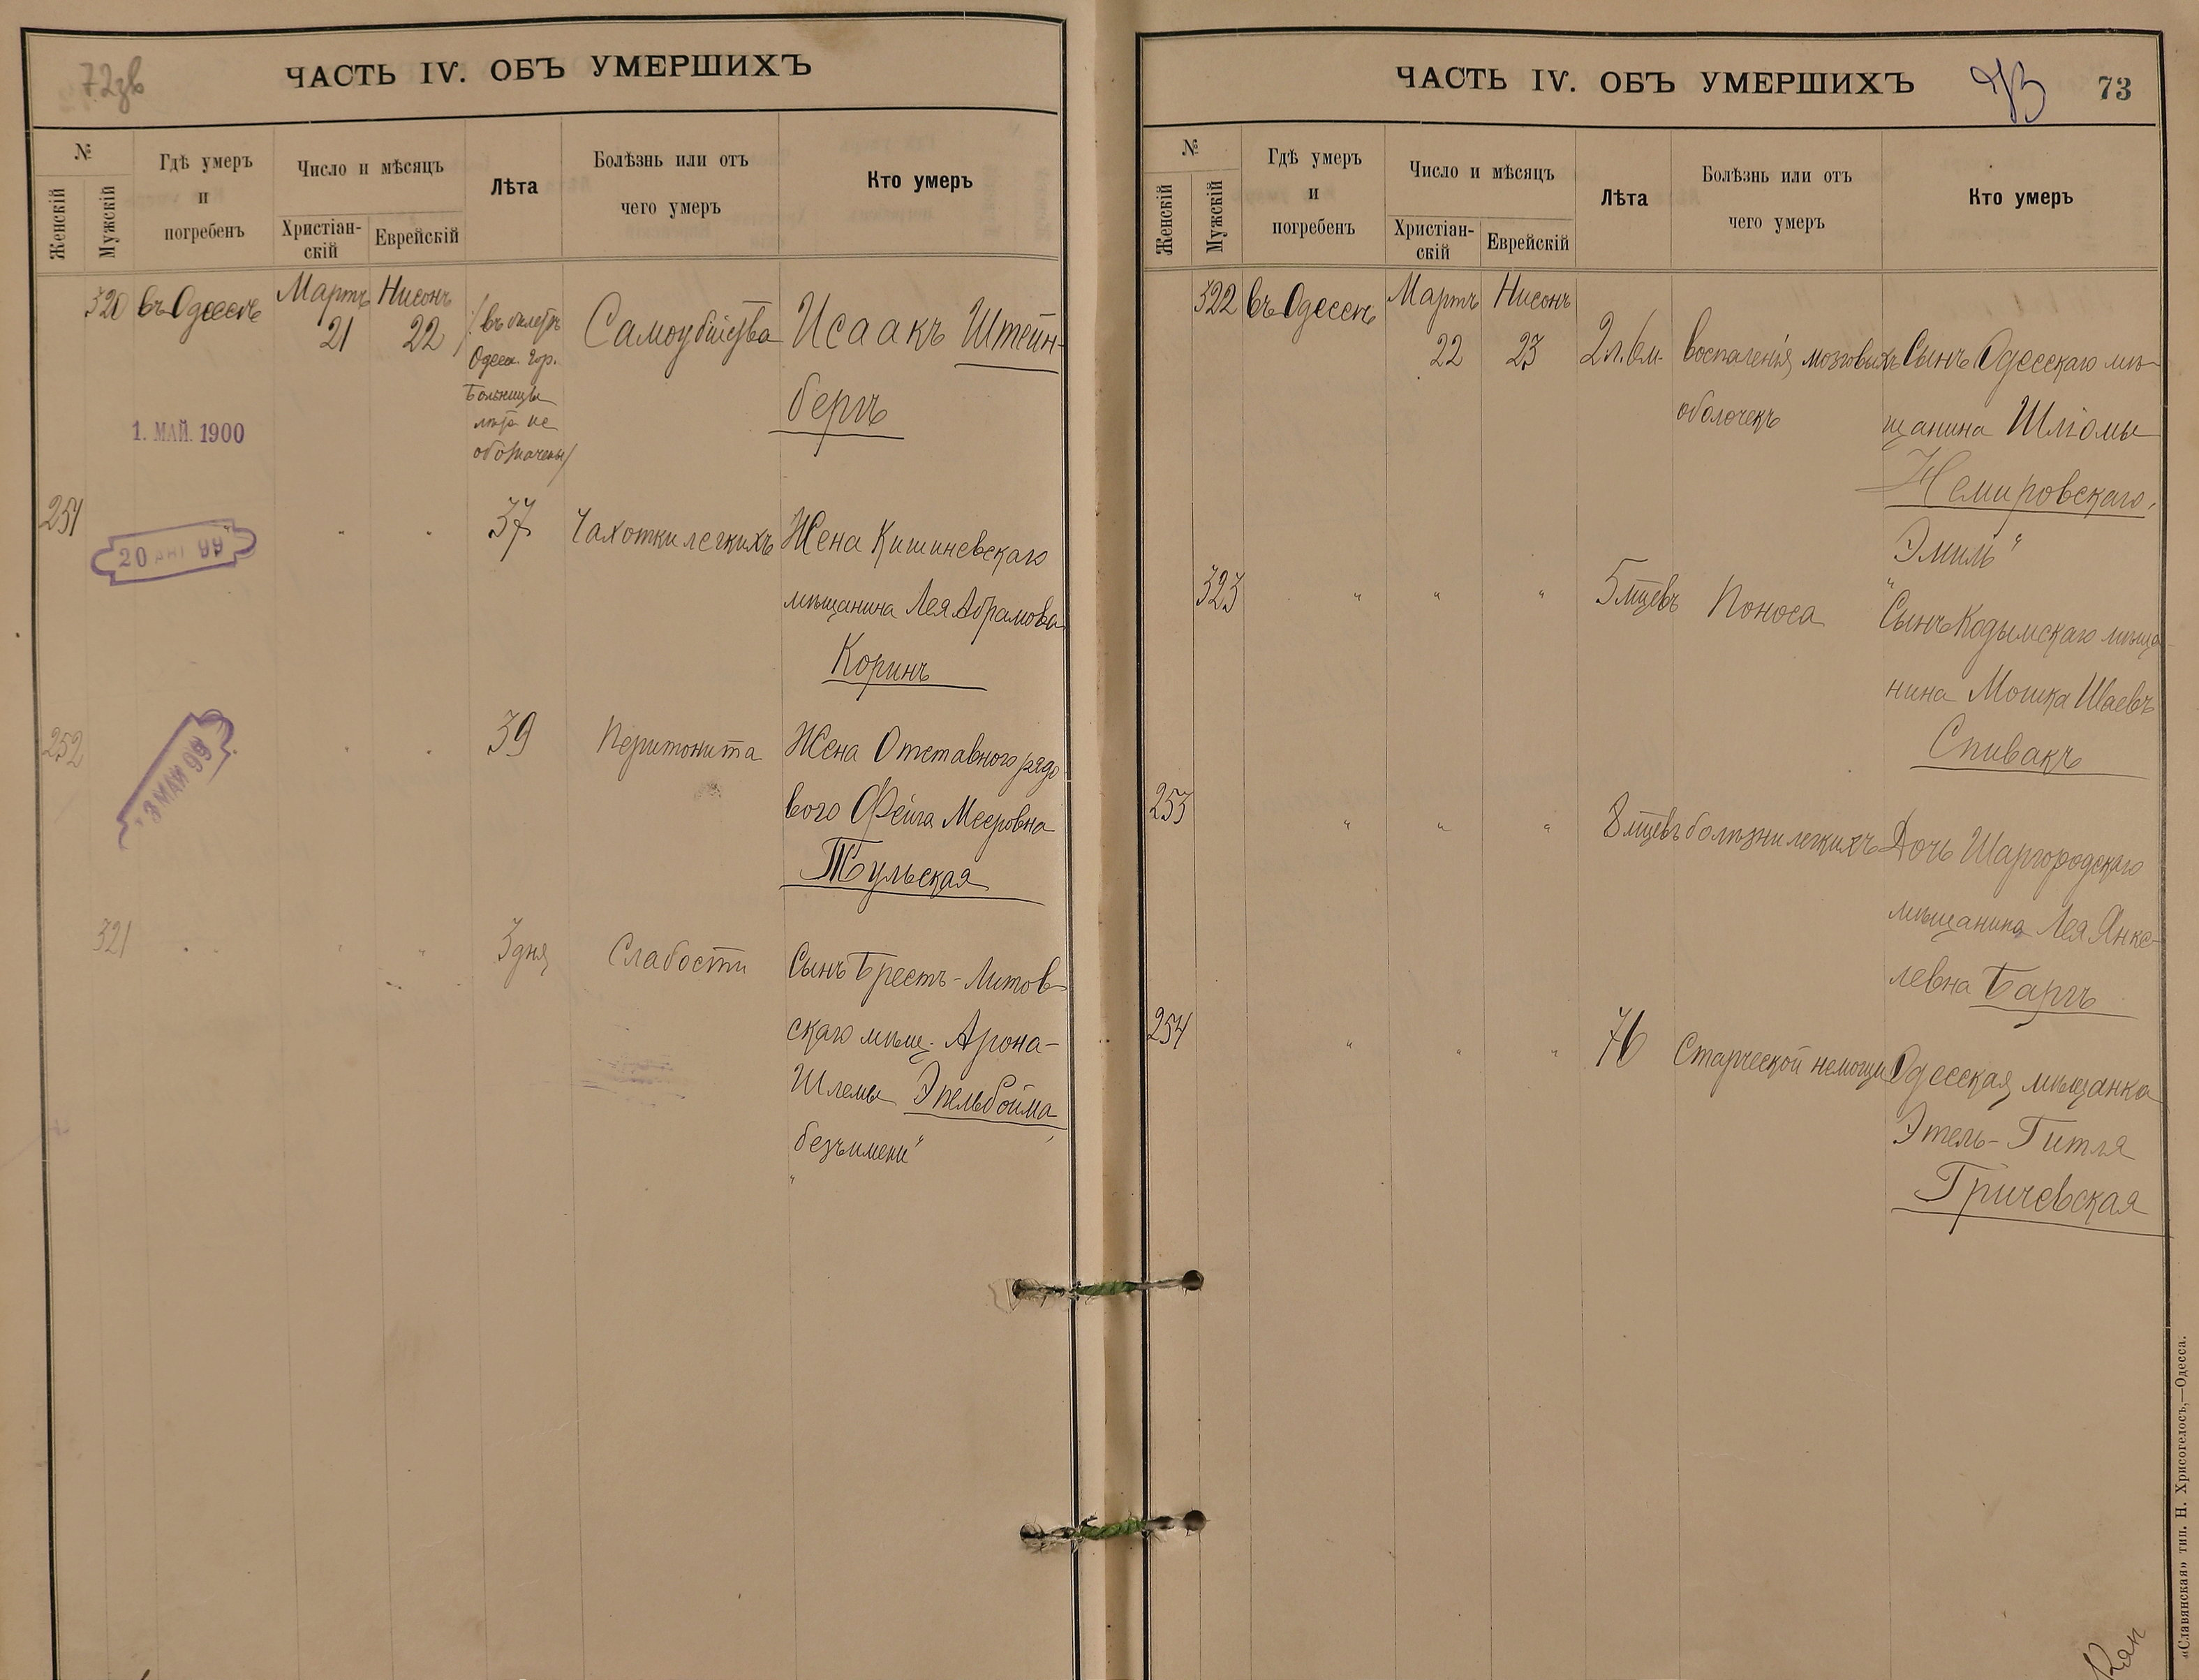 72зв
ЧАСТЬ IV. ОБЪ УМЕРШИХЪ
№
Женскій
Мужскій
Гдѣ умеръ
и
погребенъ
Число и мѣсяцъ
Христіан-
скій
Еврейскій
Лѣта
Болѣзнь или отъ
чего умеръ
Кто умеръ
320 въ Одессѣ Мартъ 21 Нисонъ 22
/въ билетѣ
Одесс. Гор.
Больницы
лѣта не
обозначены/
Самоубійства
Исаакъ Штейн-
бергъ
1. МАЙ. 1900
251 " " 37 Чахотки легкихъ
Жена Кишиневскаго
мѣщанина Лея Абрамова
Коринъ
20 АПГ 99
252 " " 39 Перитонита
Жена Отставного рядо
вого Фейга Мееровна
Тульская
3 МАЯ 99
321 " " " 3 дня Слабости
Сынъ Брестъ-Литов-
скаго мѣщ. Арона-
Шлемы Эпельбойма
"безъ имени"
ЧАСТЬ IV. ОБЪ УМЕРШИХЪ
73
73
№
Женскій
Мужскій
Гдѣ умеръ
и
погребенъ
Число и мѣсяцъ
Христіан-
скій
Еврейскій
Лѣта
Болѣзнь или отъ
чего умеръ
Кто умеръ
322 въ Одессѣ Мартъ 22 Нисонъ 23 2 л. 6 м.
воспаленія мозговыхъ
оболочекъ
Сынъ Одесскаго мѣ-
щанина Шлiомы
Немировскаго,
"Эмиль"
323 " " " 5 мцевъ Поноса
Сынъ Кодымскаго мѣща-
нина Мошка Шаевъ
Спивакъ
253 " " " 8 мцевъ болѣзни легкихъ
Дочь Шаргородскаго
мѣщанина Лея Янке-
левна Баргъ
254 " " " 76 Старческой немощи
Одесская мѣщанка
Этель-Гитля
Гричевская
«Славянская» тип. Н. Хрисогелосъ,—Одесса.